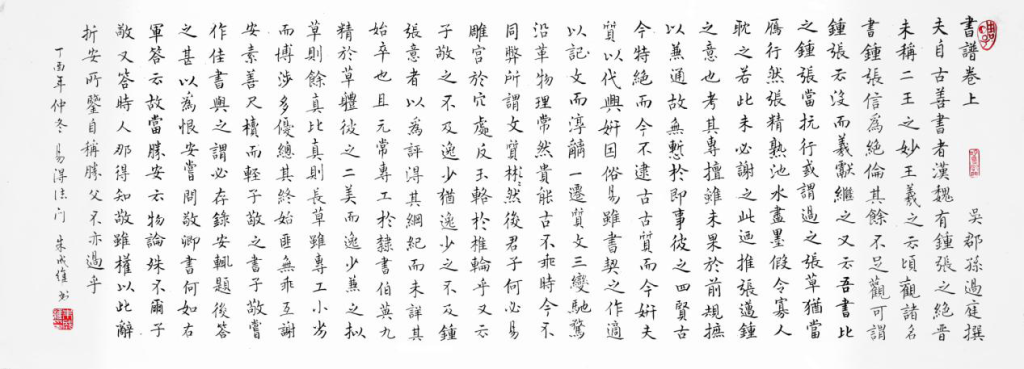 書譜卷上 吳郡孫過庭撰
夫自古善書者漢魏有鍾張之絕晉
末稱二王之妙王羲之云頃觀諸名
書鍾張信為絕倫其餘不足觀可謂
鍾張云沒而羲獻繼之又云吾書比
之鍾張當抗行或謂過之張草猶當
鴈行然張精熟池水盡墨假令寡人
耽之若此未必謝之此迺推張邁鍾
之意也考其專擅雖未果於前規摭
以兼通故無慙於即事彼之四賢古
今特絕而今不逮古古質而今妍夫
質以代興妍因俗易雖書契之作適
以記文而淳醨一遷質文三變馳騖
沿革物理常然貴能古不乖時今不
同弊所謂文質彬々然後君子何必易
雕宮於穴處反玉輅於椎輪乎又云
子敬之不及逸少猶逸少之不及鍾
張意者以為評得其綱紀而未詳其
始卒也且元常專工於隸書伯英尤
精於草體彼之二美而逸少兼之拟
草則餘真比真則長草雖專工小劣
而博涉多優總其終始匪無乖互謝
安素善尺牘而輕子敬之書子敬嘗
作佳書與之謂必存錄安輒題後答
之甚以為恨安嘗問敬卿書何如右
軍答云故當勝安云物論殊不爾子
敬又答時人那得知敬雖權以此辭
折安所鑒自稱勝父不亦過乎
丁酉年仲冬 易得法门 朱成維